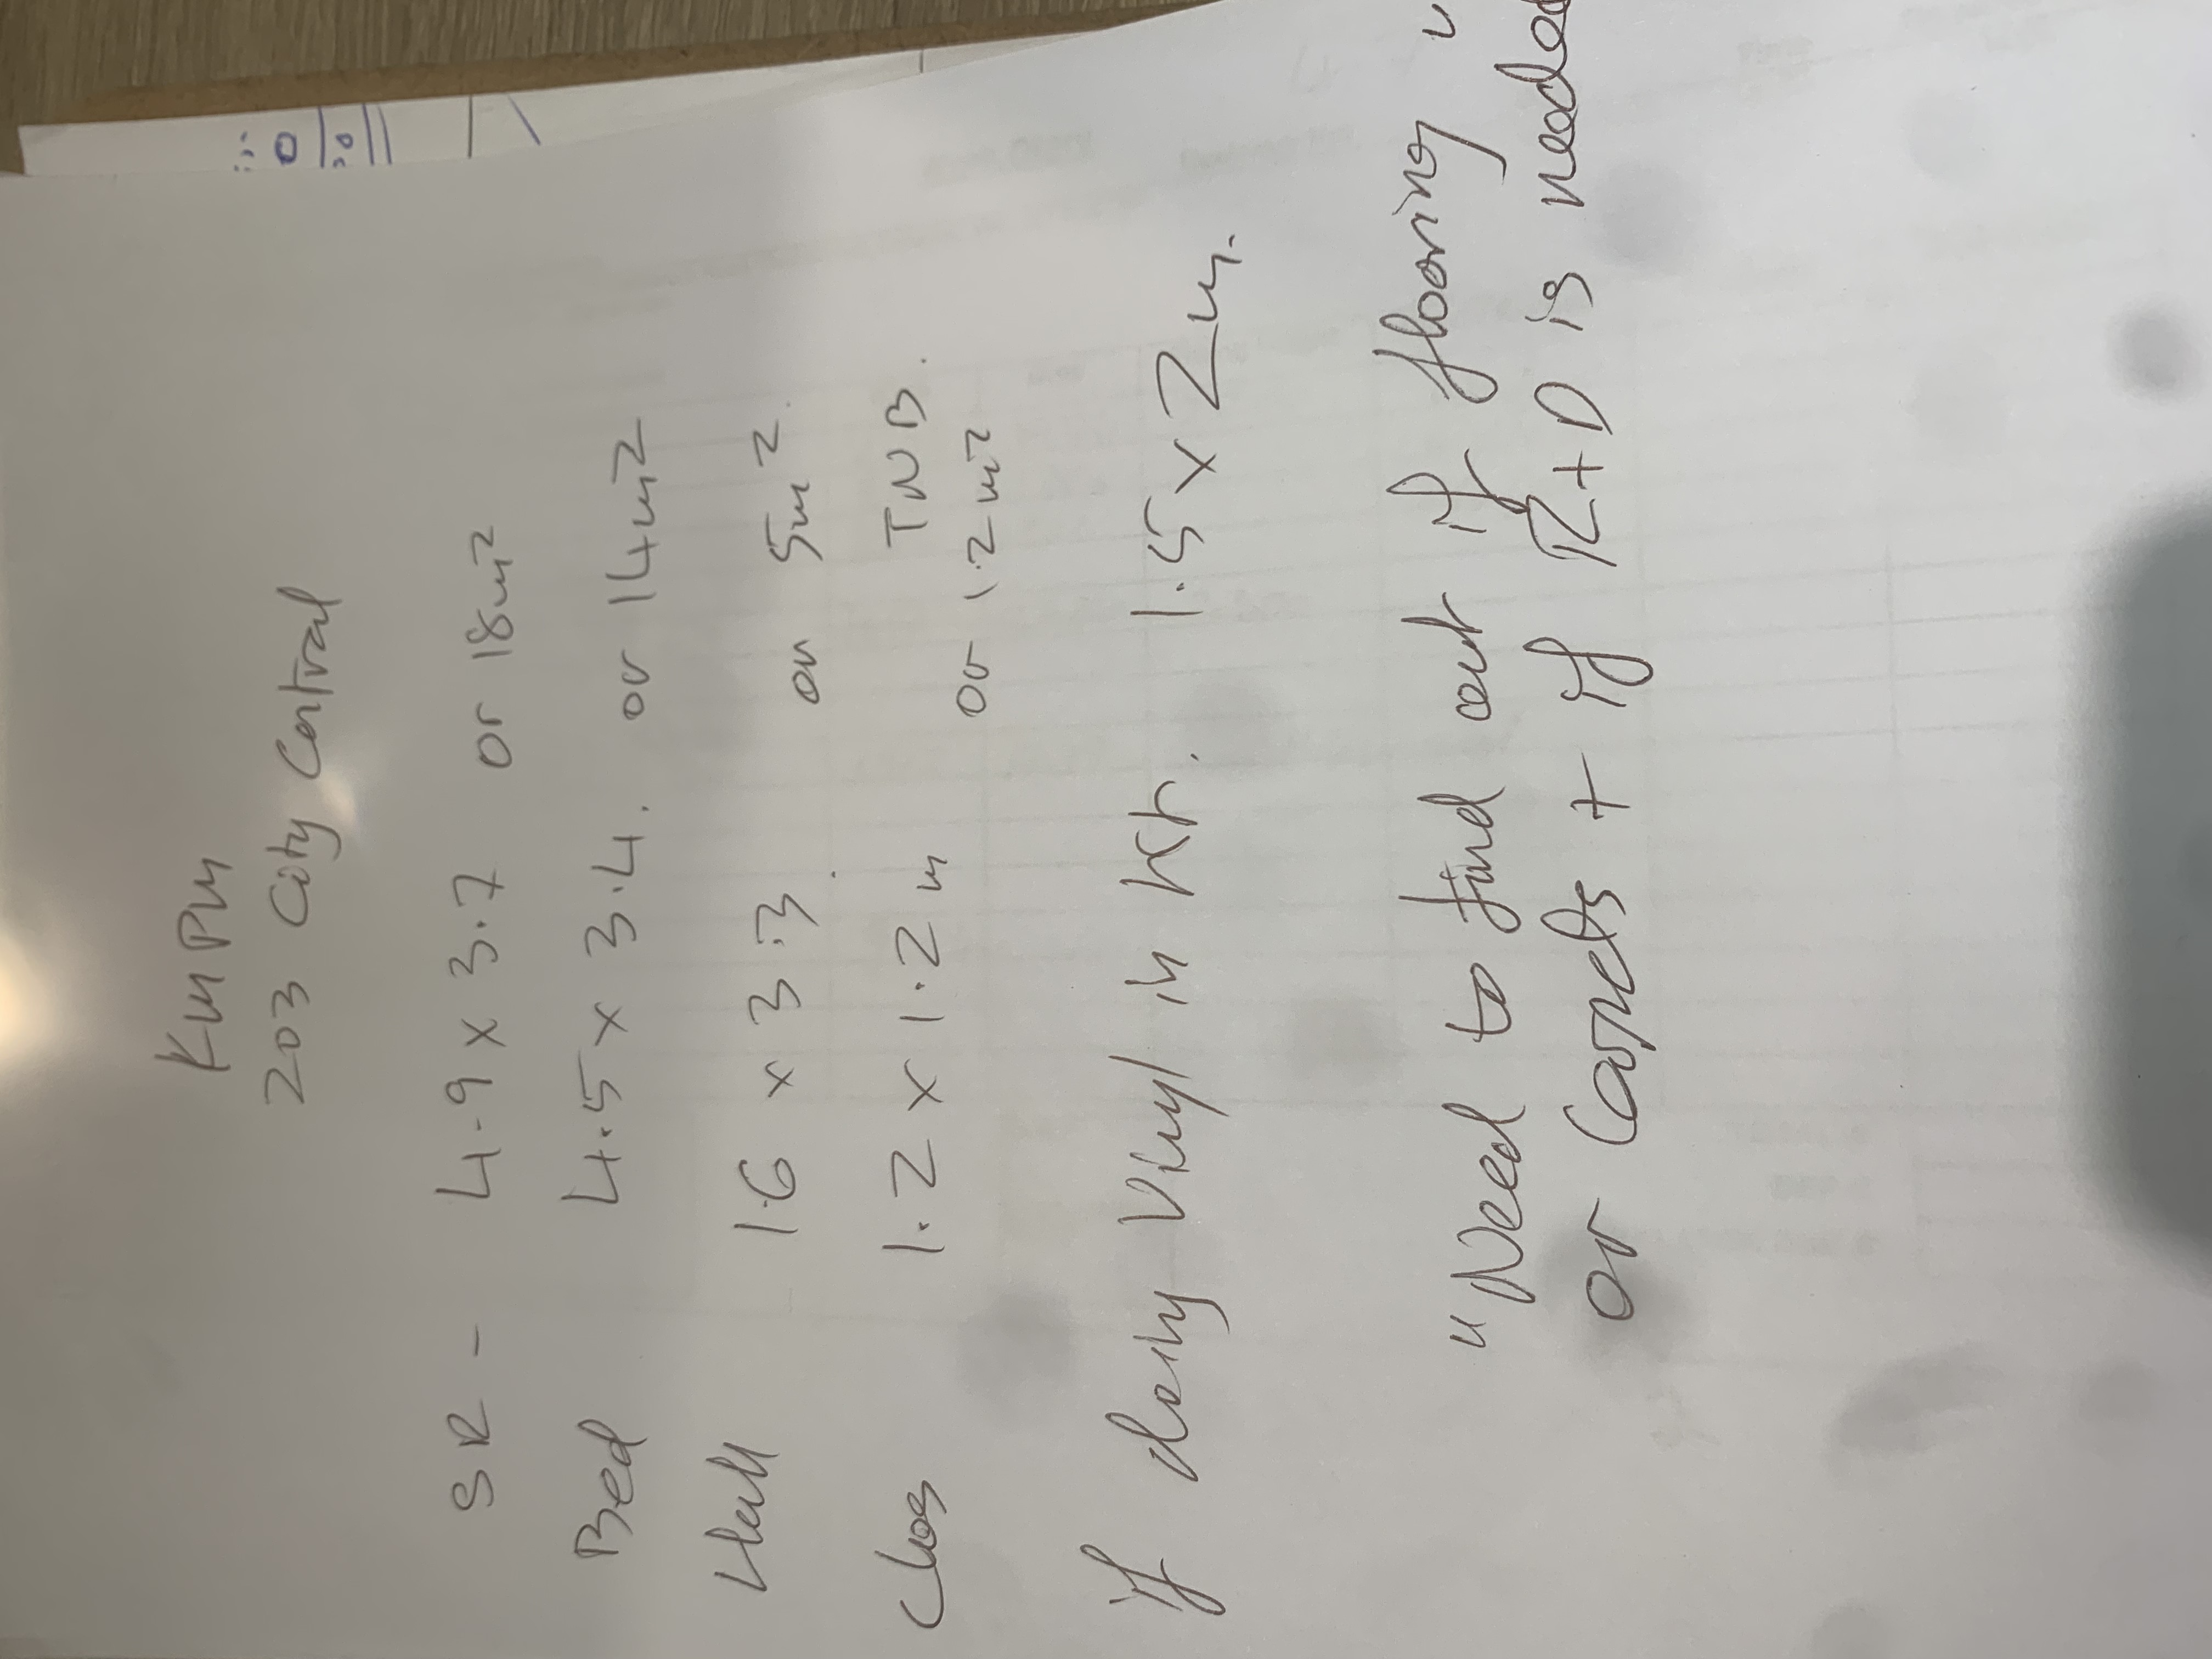 KMPM
203 City Central
SR - 4.9 x 3.7 or 18m²
Bed 4.5 x 3.4. or 14m²
Hall 1.6 x 3.3. or 5m²
Clos 1.2 x 1.2m TNB.
or 1.2m²
if doing Vinyl in kit. 1.5 x 2m.
"Need to find out if flooring "
or Carpets + if R+D is needed